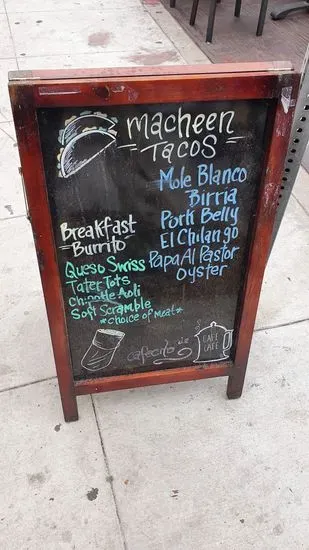 macheen
TACOS
Mole Blanco
Birria
Pork Belly
El Chilango
Papa Al Pastor
Oyster
Breakfast
Burrito
Queso Swiss
Tater Tots
Chipotle Aoli
Soft Scramble
*choice of meat*
cafecito
CAFE
CAFE